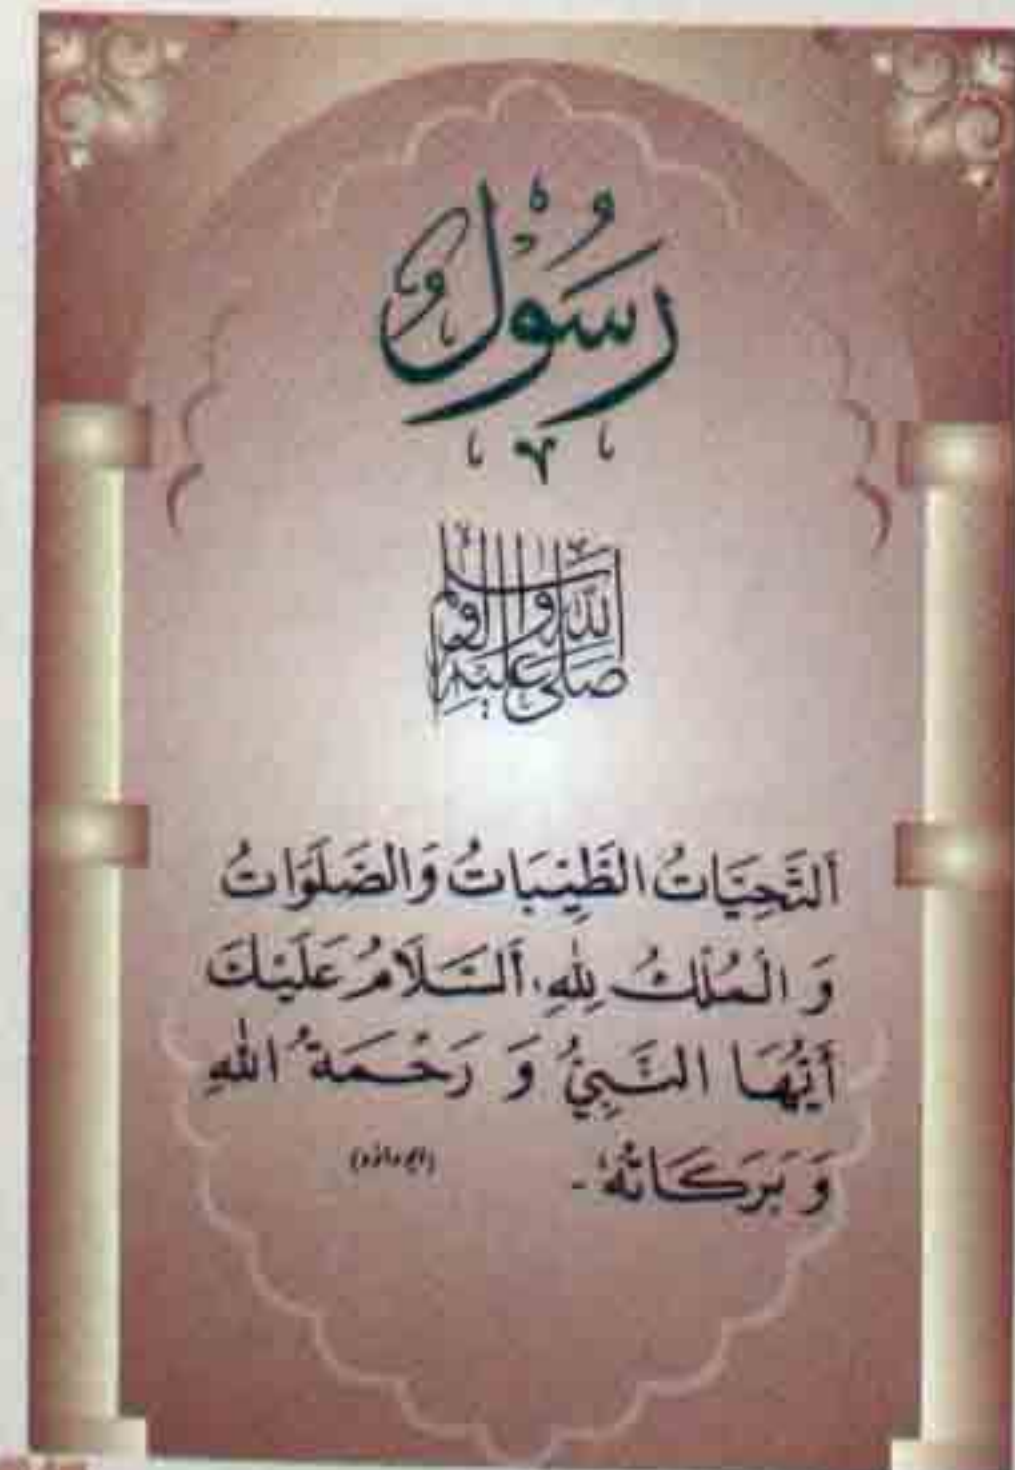 رَسُوْلٌ
صَلَّى اللّٰهُ عَلَيْهِ وَاٰلِهٖ وَسَلَّم
اَلتَّحِيَّاتُ الطَّيِّبَاتُ وَالصَّلَوَاتُ
وَ الْمُلْكُ لِلّٰهِ، اَلسَّلَامُ عَلَيْكَ
أَيُّهَا النَّبِيُّ وَ رَحْمَةُ اللّٰهِ
وَ بَرَكَاتُهٗ۔ (ابو داؤد)